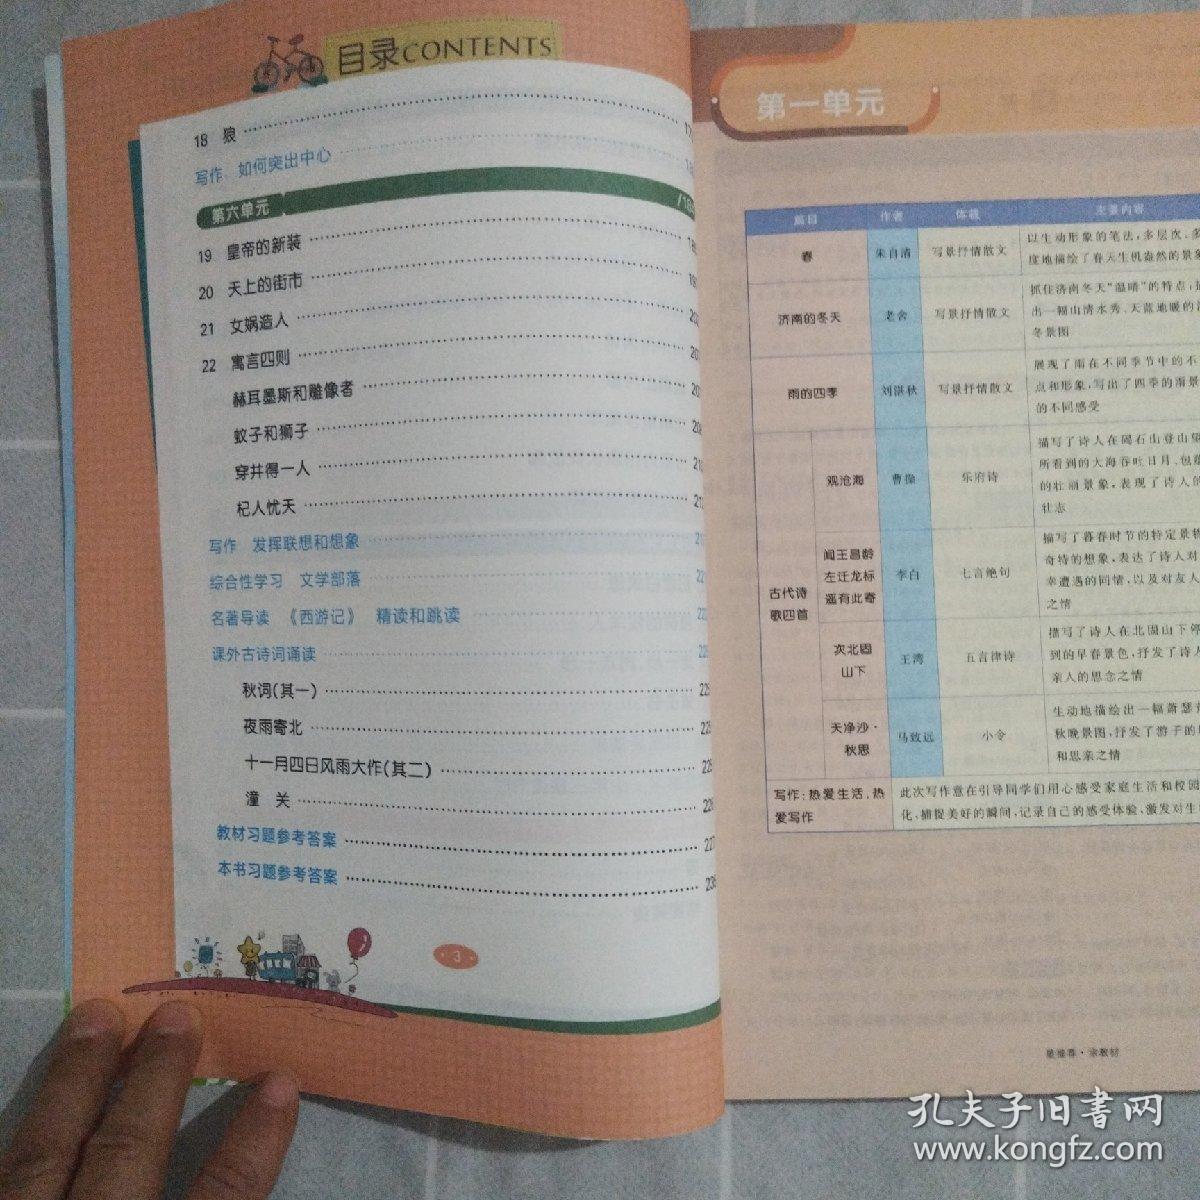 目录CONTENTS
18 狼
写作 如何突出中心
第六单元
19 皇帝的新装
20 天上的街市
21 女娲造人
22 寓言四则
赫耳墨斯和雕像者
蚊子和狮子
穿井得一人
杞人忧天
写作 发挥联想和想象
综合性学习 文学部落
名著导读 《西游记》 精读和跳读
课外古诗词诵读
秋词(其一)
夜雨寄北
十一月四日风雨大作(其二)
潼关
教材习题参考答案
本书习题参考答案
·3·
第一单元
篇目 作者 体裁 主要内容
春 朱自清 写景抒情散文
以生动形象的笔法,多层次、多
度地描绘了春天生机盎然的景象
济南的冬天 老舍 写景抒情散文
抓住济南冬天“温晴”的特点,
出一幅山清水秀、天蓝地暖的
冬景图
雨的四季 刘湛秋 写景抒情散文
展现了雨在不同季节中的不
点和形象,写出了四季的雨景
的不同感受
古代诗
歌四首
观沧海 曹操 乐府诗
描写了诗人在碣石山登山
所看到的大海吞吐日月、包
的壮丽景象,表现了诗人的
壮志
闻王昌龄
左迁龙标
遥有此寄
李白 七言绝句
描写了暮春时节的特定景物
奇特的想象,表达了诗人对
幸遭遇的同情,以及对友人
之情
次北固
山下
王湾 五言律诗
描写了诗人在北固山下停
到的早春景色,抒发了诗人
亲人的思念之情
天净沙·
秋思
马致远 小令
生动地描绘出一幅萧瑟
秋晚景图,抒发了游子的
和思亲之情
写作:热爱生活,热
爱写作
此次写作意在引导同学们用心感受家庭生活和校园
化,捕捉美好的瞬间,记录自己的感受体验,激发对生
孔夫子旧书网
www.kongfz.com